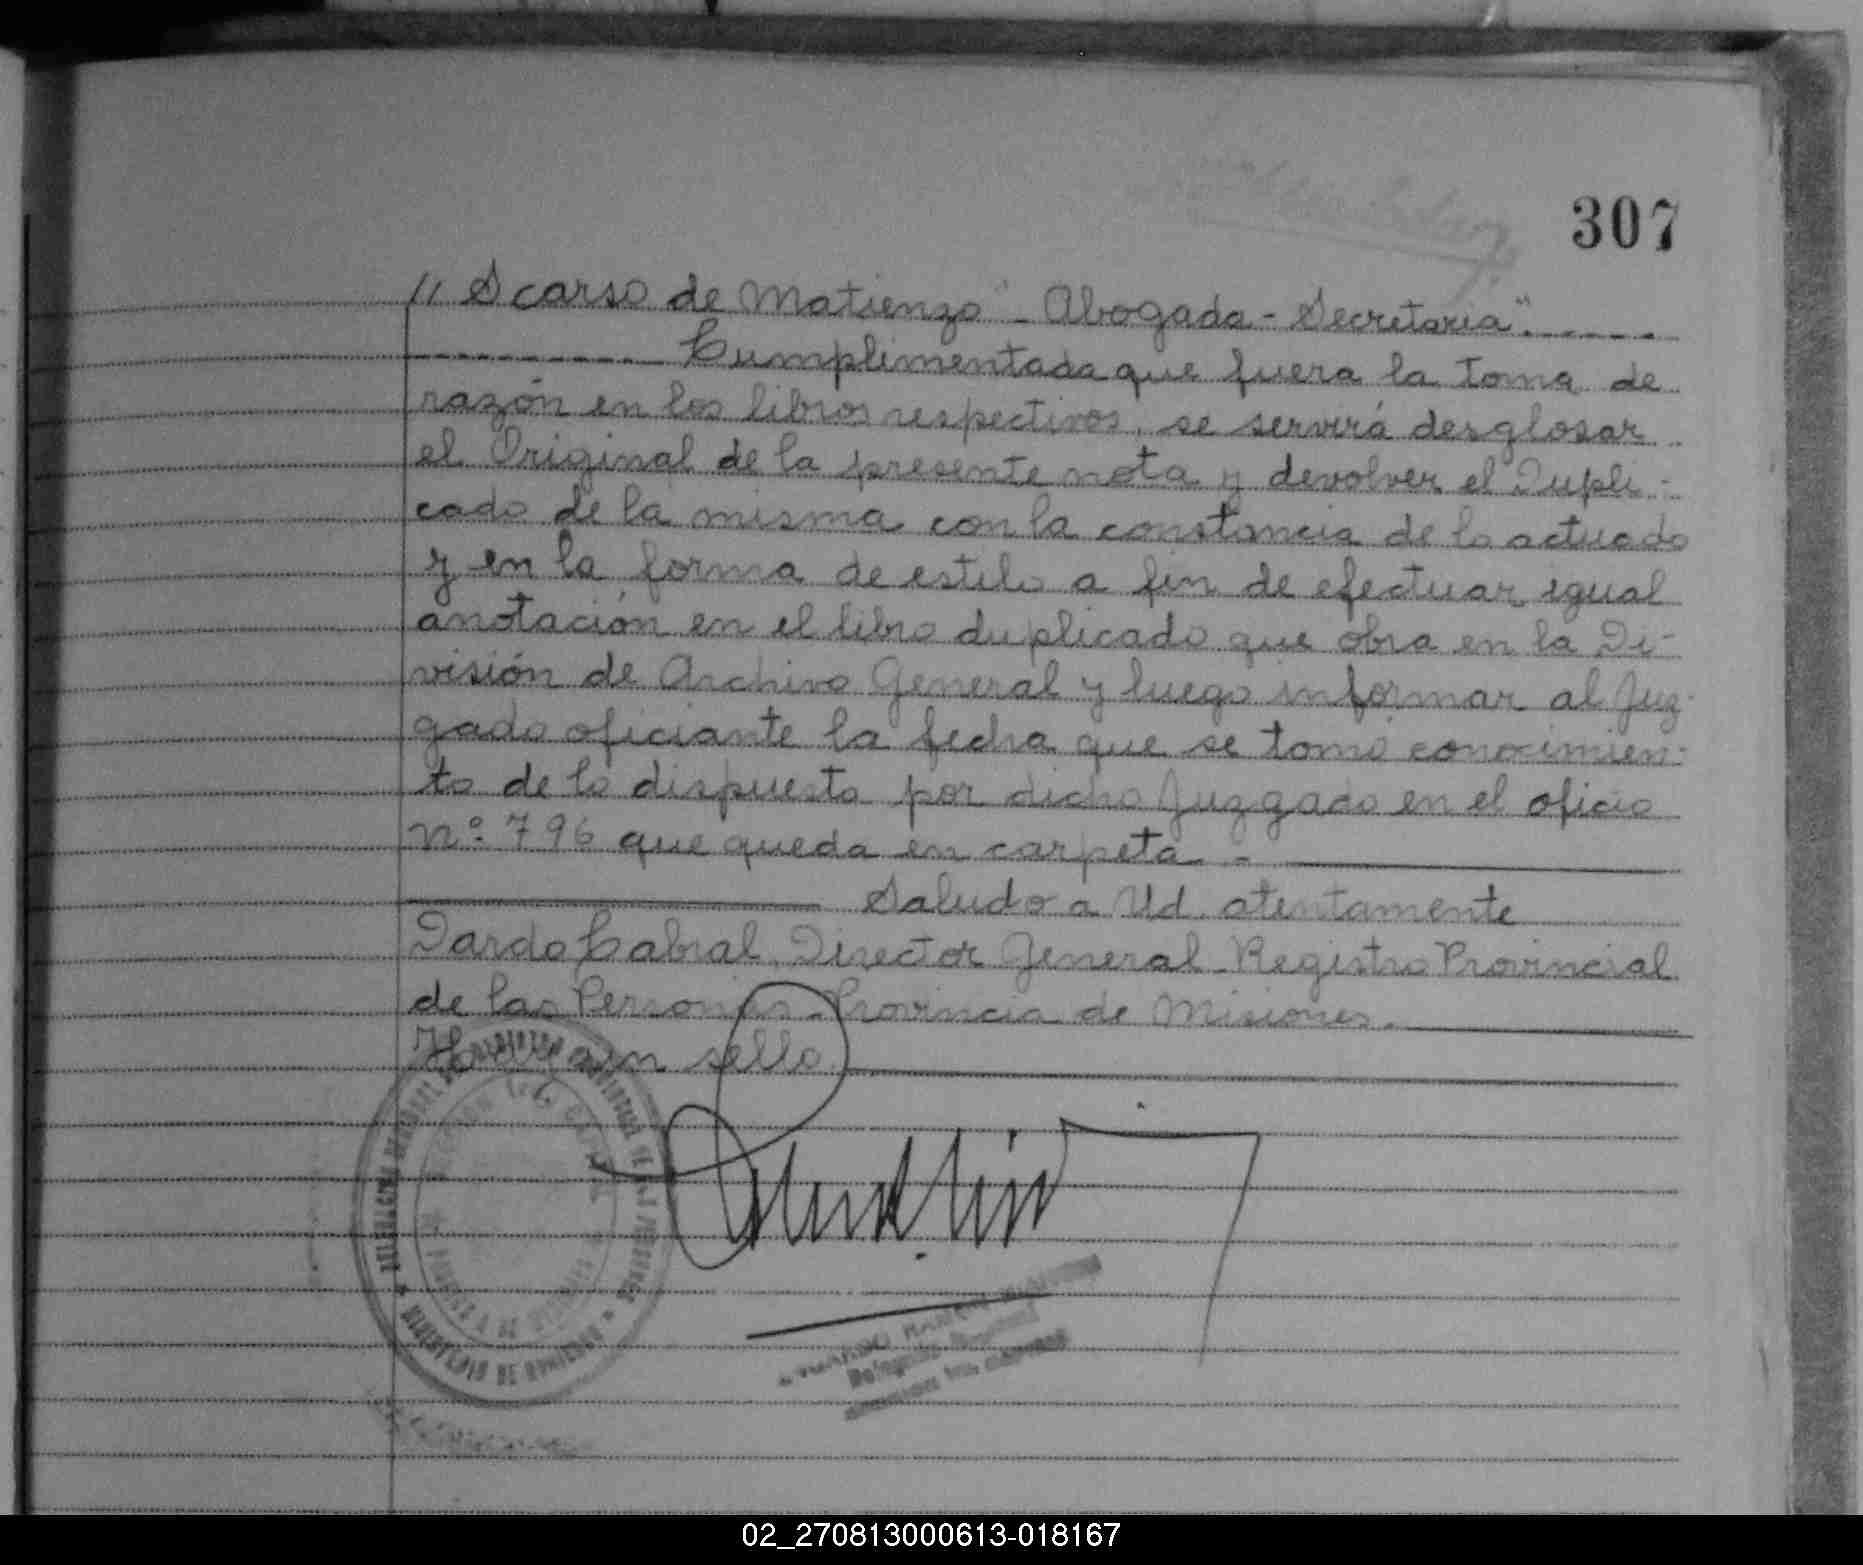 307
// Scarso de Matienzo" - Abogada - Secretaria". - - - - -
- - - - - - - - - - - Cumplimentada que fuera la toma de
razón en los libros respectivos, se servirá desglosar
el Original de la presente nota y devolver el Dupli-
cado de la misma con la constancia de lo actuado
y en la forma de estilo a fin de efectuar igual
anotación en el libro duplicado que obra en la Di-
visión de Archivo General y luego informar al Juz-
gado oficiante la fecha que se tomó conocimien-
to de lo dispuesto por dicho Juzgado en el oficio
nº 796 que queda en carpeta. -
Saludo a Ud. atentamente
Dardo Cabral. Director General Registro Provincial
de las Personas - Provincia de Misiones.
Hay un sello.
REGISTRO PROVINCIAL DE LAS PERSONAS
MINISTERIO DE GOBIERNO
02_270813000613-018167